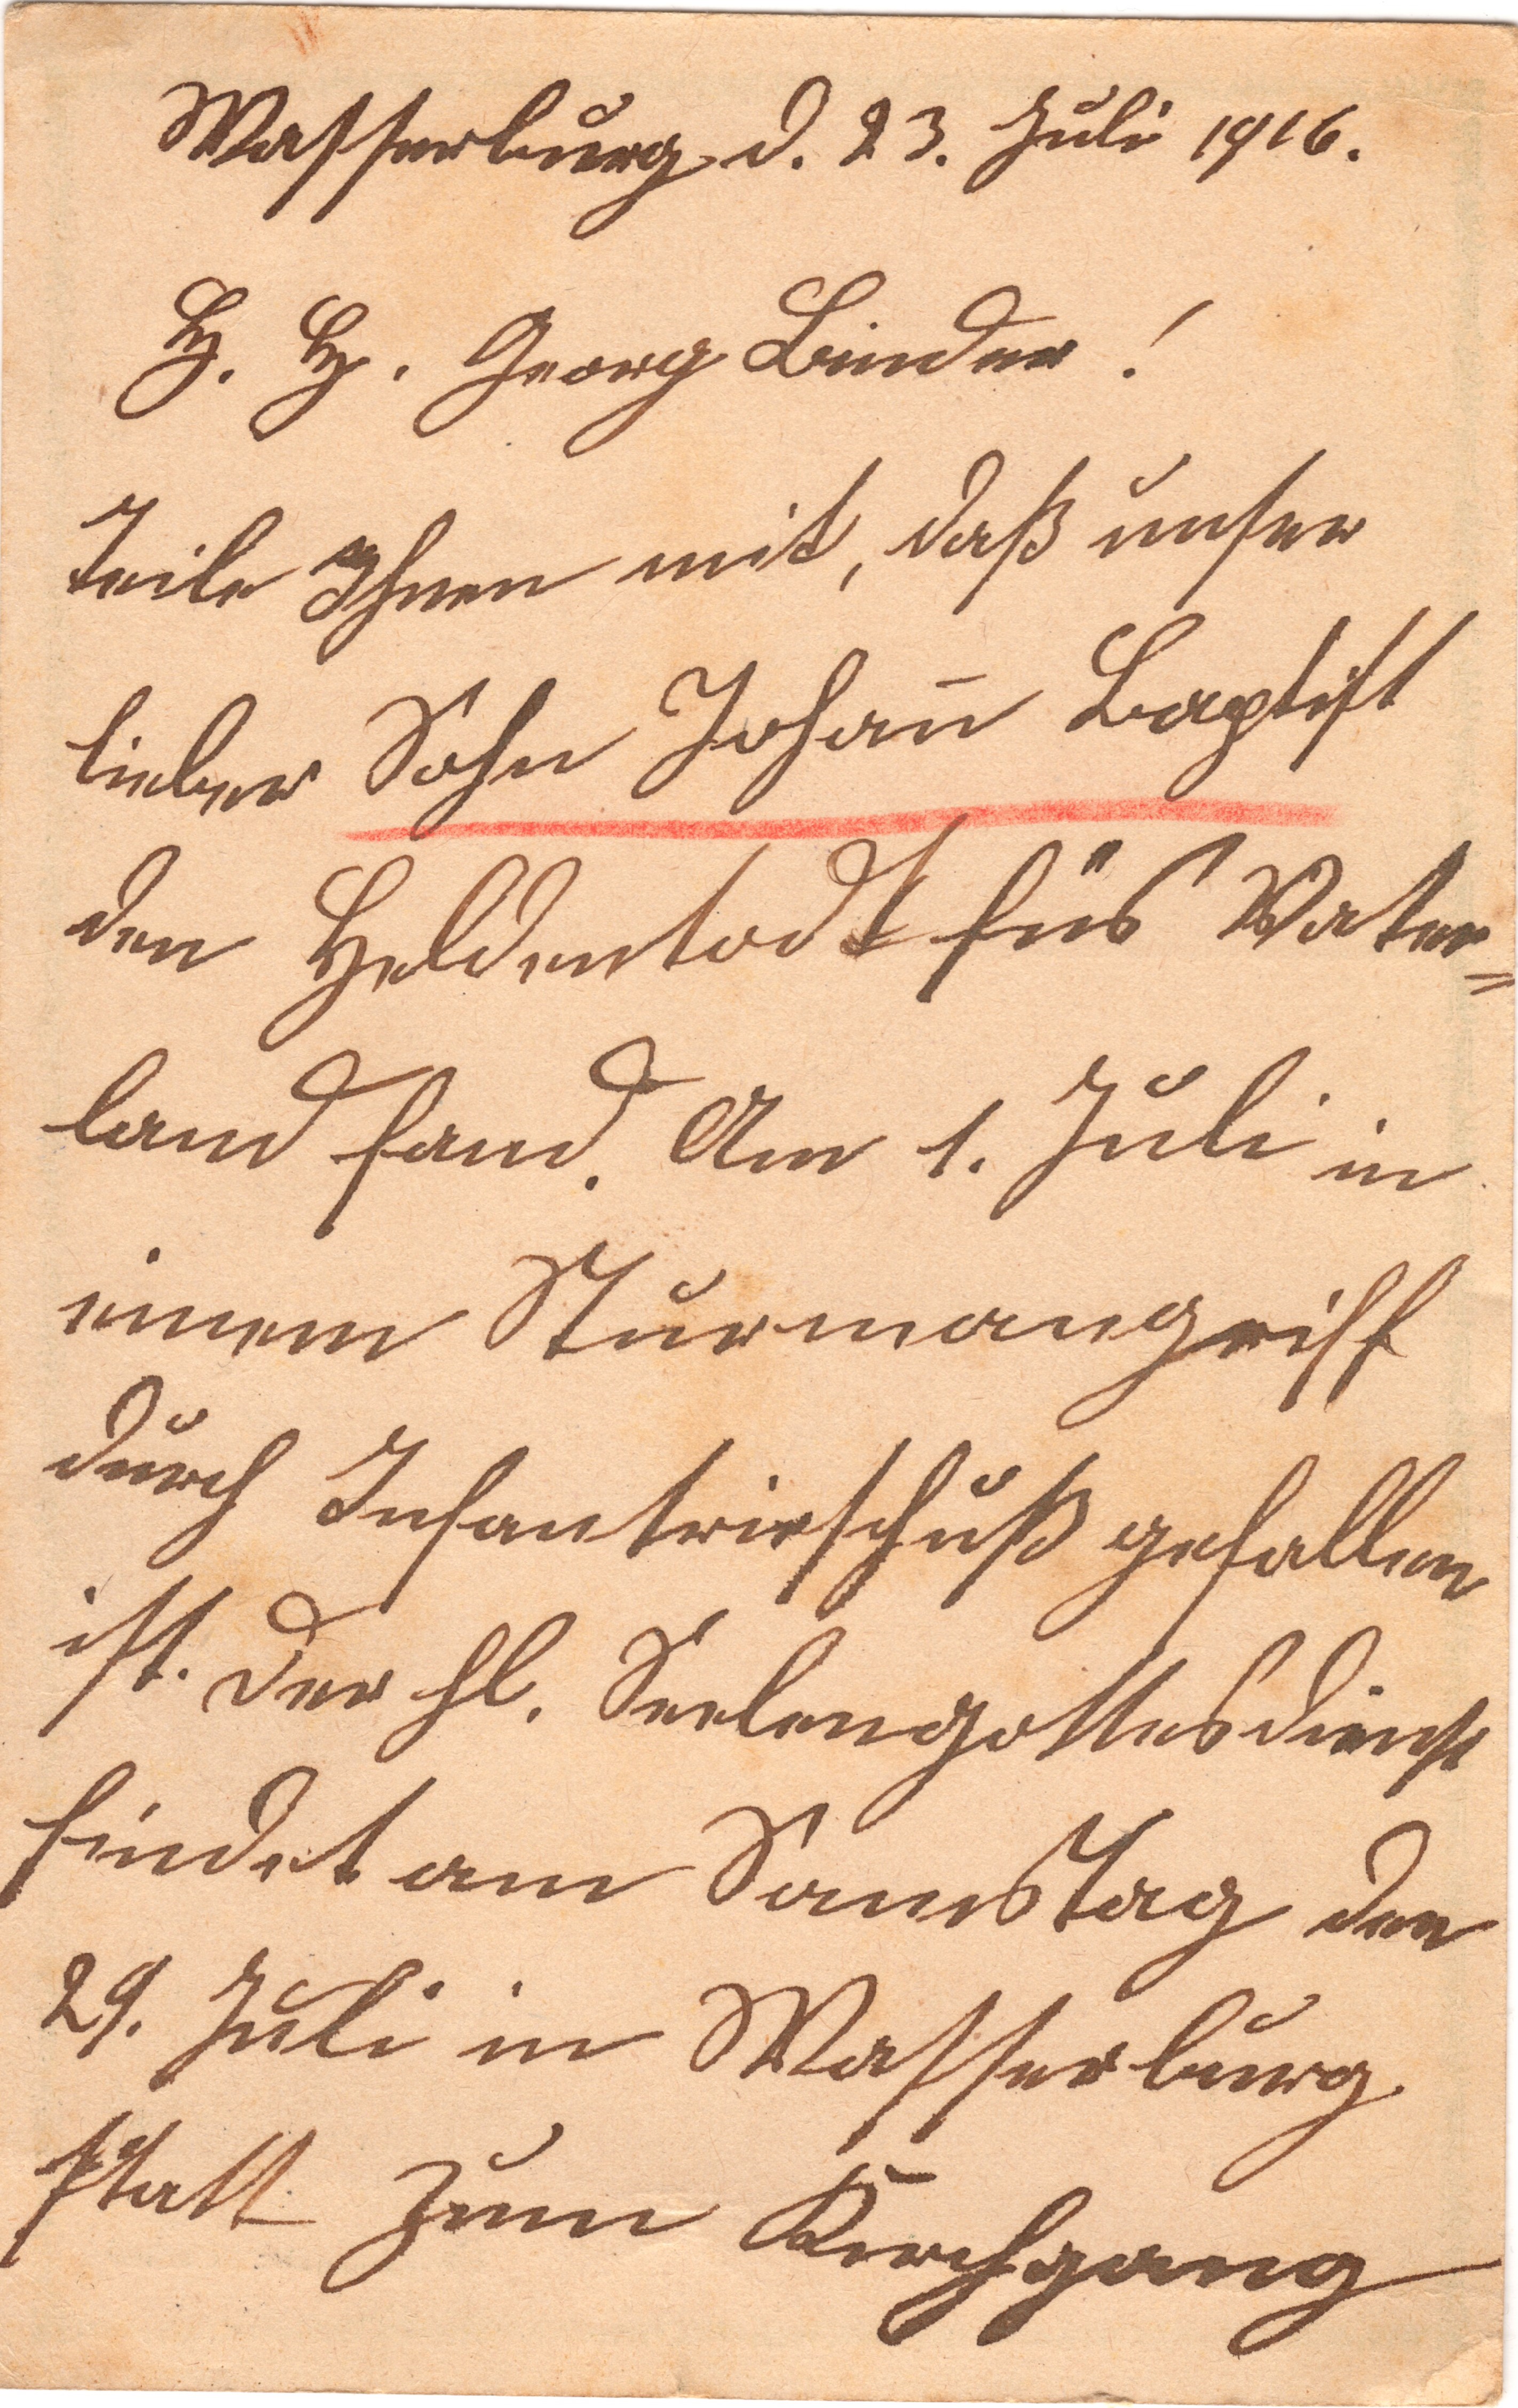 Wasserburg d. 23. Juli 1916.
H. H. Georg Binder!
Teile Ihnen mit, daß unser
lieber Sohn Johan̄ Baptist
den Heldentodt füs Vater=
land fand. Am 1. Juli in
einem Sturmangriff
durch Infantrieschuß gefallen
ist. Der hl. Seelengottesdienst
findet am Samstag den
29. Juli in Wasserburg
statt zum Kirchgang